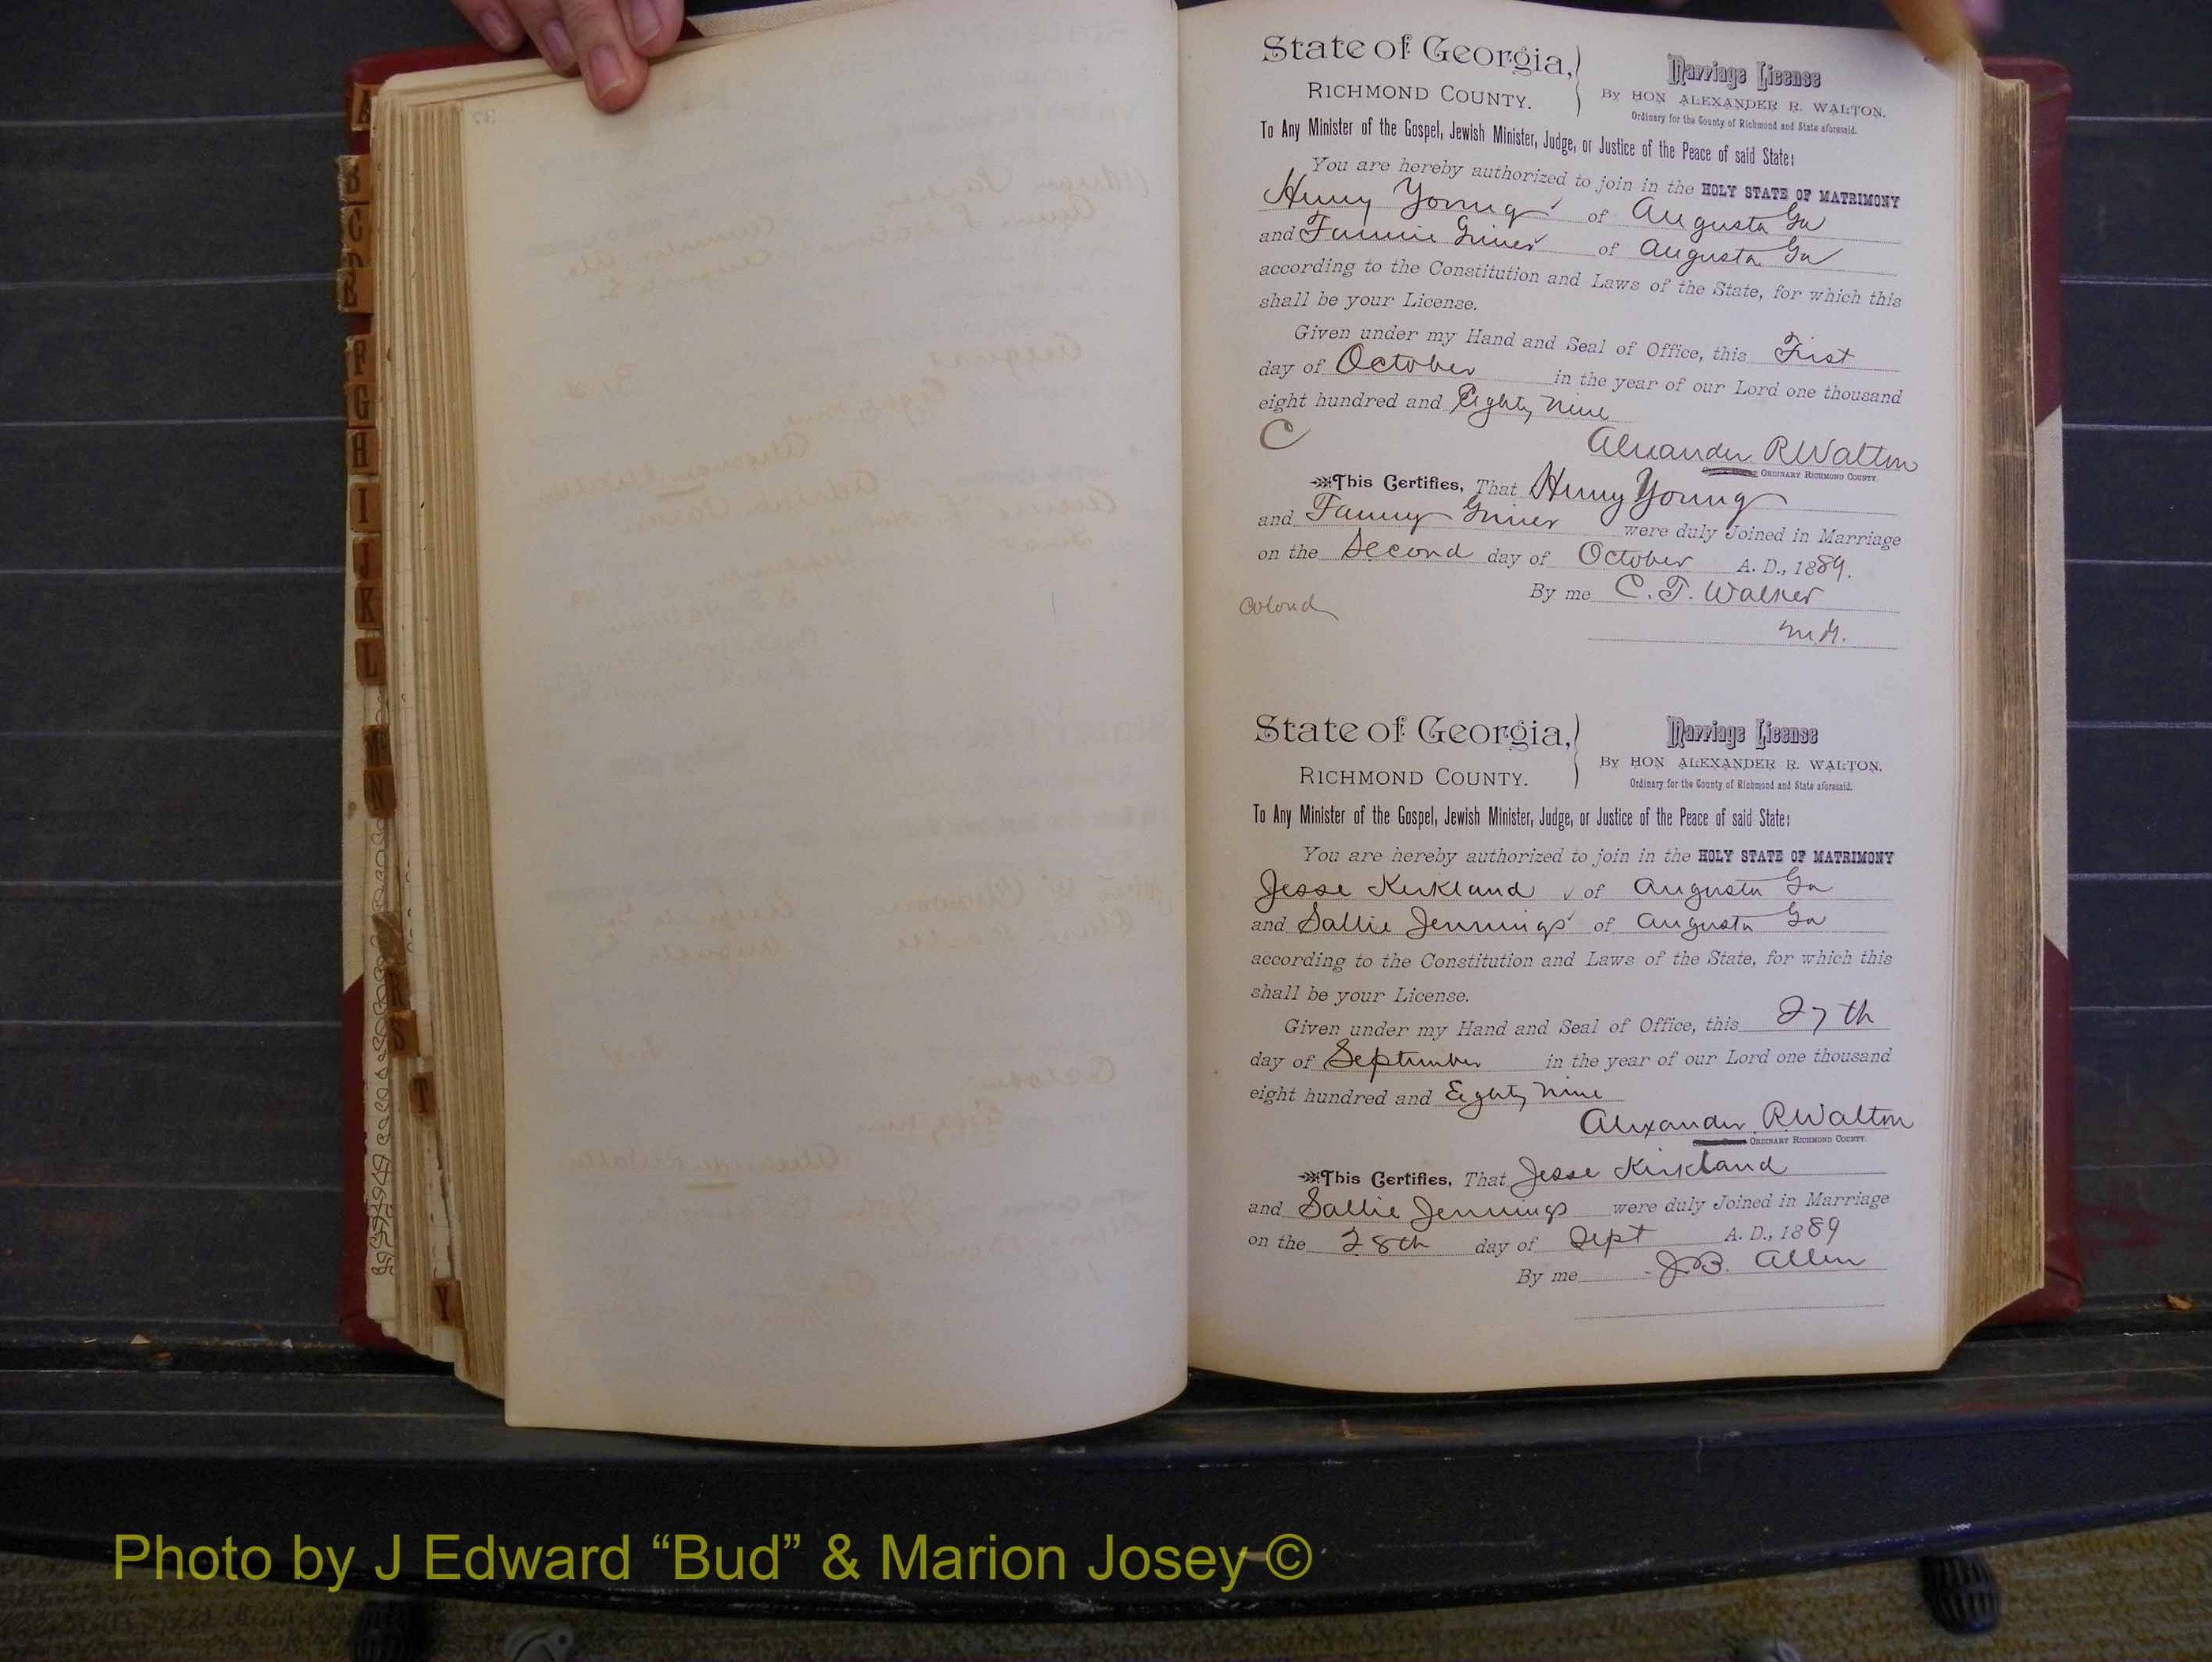 A
B
C
D
F
G
H
I
J
K
L
M
N
R
S
T
Y
State of Georgia,
RICHMOND COUNTY.
Marriage License
By HON ALEXANDER R. WALTON.
Ordinary for the County of Richmond and State aforesaid.
To Any Minister of the Gospel, Jewish Minister, Judge, or Justice of the Peace of said State:
You are hereby authorized to join in the HOLY STATE OF MATRIMONY
Henry Young of Augusta Ga
and Fannie Griner of Augusta Ga
according to the Constitution and Laws of the State, for which this
shall be your License.
Given under my Hand and Seal of Office, this First
day of October in the year of our Lord one thousand
eight hundred and Eighty Nine
C
Alexander R Walton
ORDINARY RICHMOND COUNTY.
This Certifies, That Henry Young
and Fanny Griner were duly Joined in Marriage
on the Second day of October A. D., 1889.
By me C. T. Walker
Colored
M.G.
State of Georgia,
RICHMOND COUNTY.
Marriage License
By HON ALEXANDER R. WALTON.
Ordinary for the County of Richmond and State aforesaid.
To Any Minister of the Gospel, Jewish Minister, Judge, or Justice of the Peace of said State:
You are hereby authorized to join in the HOLY STATE OF MATRIMONY
Jesse Kirkland of Augusta Ga
and Sallie Jennings of Augusta Ga
according to the Constitution and Laws of the State, for which this
shall be your License.
Given under my Hand and Seal of Office, this 27th
day of September in the year of our Lord one thousand
eight hundred and Eighty Nine
Alexander R Walton
ORDINARY RICHMOND COUNTY.
This Certifies, That Jesse Kirkland
and Sallie Jennings were duly Joined in Marriage
on the 28th day of Sept A. D., 1889
By me J. B. Allen
Photo by J Edward “Bud” & Marion Josey ©